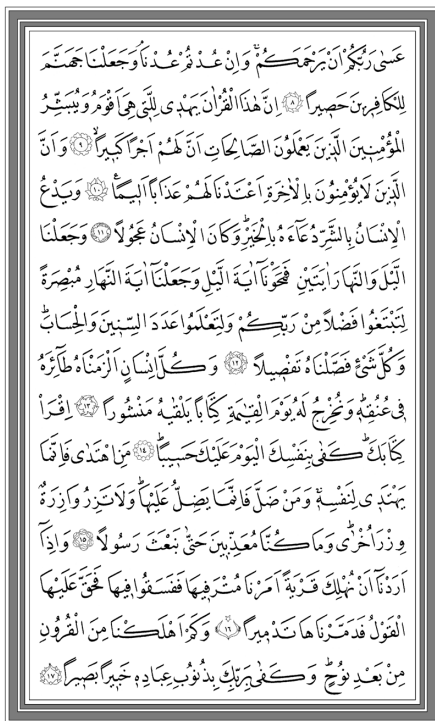 عَسٰى رَبُّكُمْ اَنْ يَرْحَمَكُمْۚ وَاِنْ عُدْتُمْ عُدْنَاۢ وَجَعَلْنَا جَهَنَّمَ
لِلْكَافِرٖينَ حَصٖيراً ﴿٨﴾ اِنَّ هٰذَا الْقُرْاٰنَ يَهْدٖى لِلَّتٖى هِيَ اَقْوَمُ وَيُبَشِّرُ
الْمُؤْمِنٖينَ الَّذٖينَ يَعْمَلُونَ الصَّالِحَاتِ اَنَّ لَهُمْ اَجْراً كَبٖيراًۙ ﴿٩﴾ وَاَنَّ
الَّذٖينَ لَا يُؤْمِنُونَ بِالْاٰخِرَةِ اَعْتَدْنَا لَهُمْ عَذَاباً اَلٖيماًࣖ ﴿١٠﴾ وَيَدْعُ
الْاِنْسَانُ بِالشَّرِّ دُعَٓاءَهُ بِالْخَيْرِؕ وَكَانَ الْاِنْسَانُ عَجُولاً ﴿١١﴾ وَجَعَلْنَا
الَّيْلَ وَالنَّهَارَ اٰيَتَيْنِ فَمَحَوْنَٓا اٰيَةَ الَّيْلِ وَجَعَلْنَٓا اٰيَةَ النَّهَارِ مُبْصِرَةً
لِتَبْتَغُوا فَضْلاً مِنْ رَبِّكُمْ وَلِتَعْلَمُوا عَدَدَ السِّنٖينَ وَالْحِسَابَؕ
وَكُلَّ شَيْءٍ فَصَّلْنَاهُ تَفْصٖيلاً ﴿١٢﴾ وَكُلَّ اِنْسَانٍ اَلْزَمْنَاهُ طَٓائِرَهُ
فٖى عُنُقِهٖؕ وَنُخْرِجُ لَهُ يَوْمَ الْقِيٰمَةِ كِتَاباً يَلْقٰيهُ مَنْشُوراً ﴿١٣﴾ اِقْرَأْ
كِتَابَكَؕ كَفٰى بِنَفْسِكَ الْيَوْمَ عَلَيْكَ حَسٖيباًؕ ﴿١٤﴾ مَنِ اهْتَدٰى فَاِنَّمَا
يَهْتَدٖى لِنَفْسِهٖۚ وَمَنْ ضَلَّ فَاِنَّمَا يَضِلُّ عَلَيْهَاؕ وَلَا تَزِرُ وَازِرَةٌ
وِزْرَ اُخْرٰىؕ وَمَا كُنَّا مُعَذِّبٖينَ حَتّٰى نَبْعَثَ رَسُولاً ﴿١٥﴾ وَاِذَٓا
اَرَدْنَٓا اَنْ نُهْلِكَ قَرْيَةً اَمَرْنَا مُتْرَفٖيهَا فَفَسَقُوا فٖيهَا فَحَقَّ عَلَيْهَا
الْقَوْلُ فَدَمَّرْنَاهَا تَدْمٖيراً ﴿١٦﴾ وَكَمْ اَهْلَكْنَا مِنَ الْقُرُونِ
مِنْ بَعْدِ نُوحٍؕ وَكَفٰى بِرَبِّكَ بِذُنُوبِ عِبَادِهٖ خَبٖيراً بَصٖيراً ﴿١٧﴾